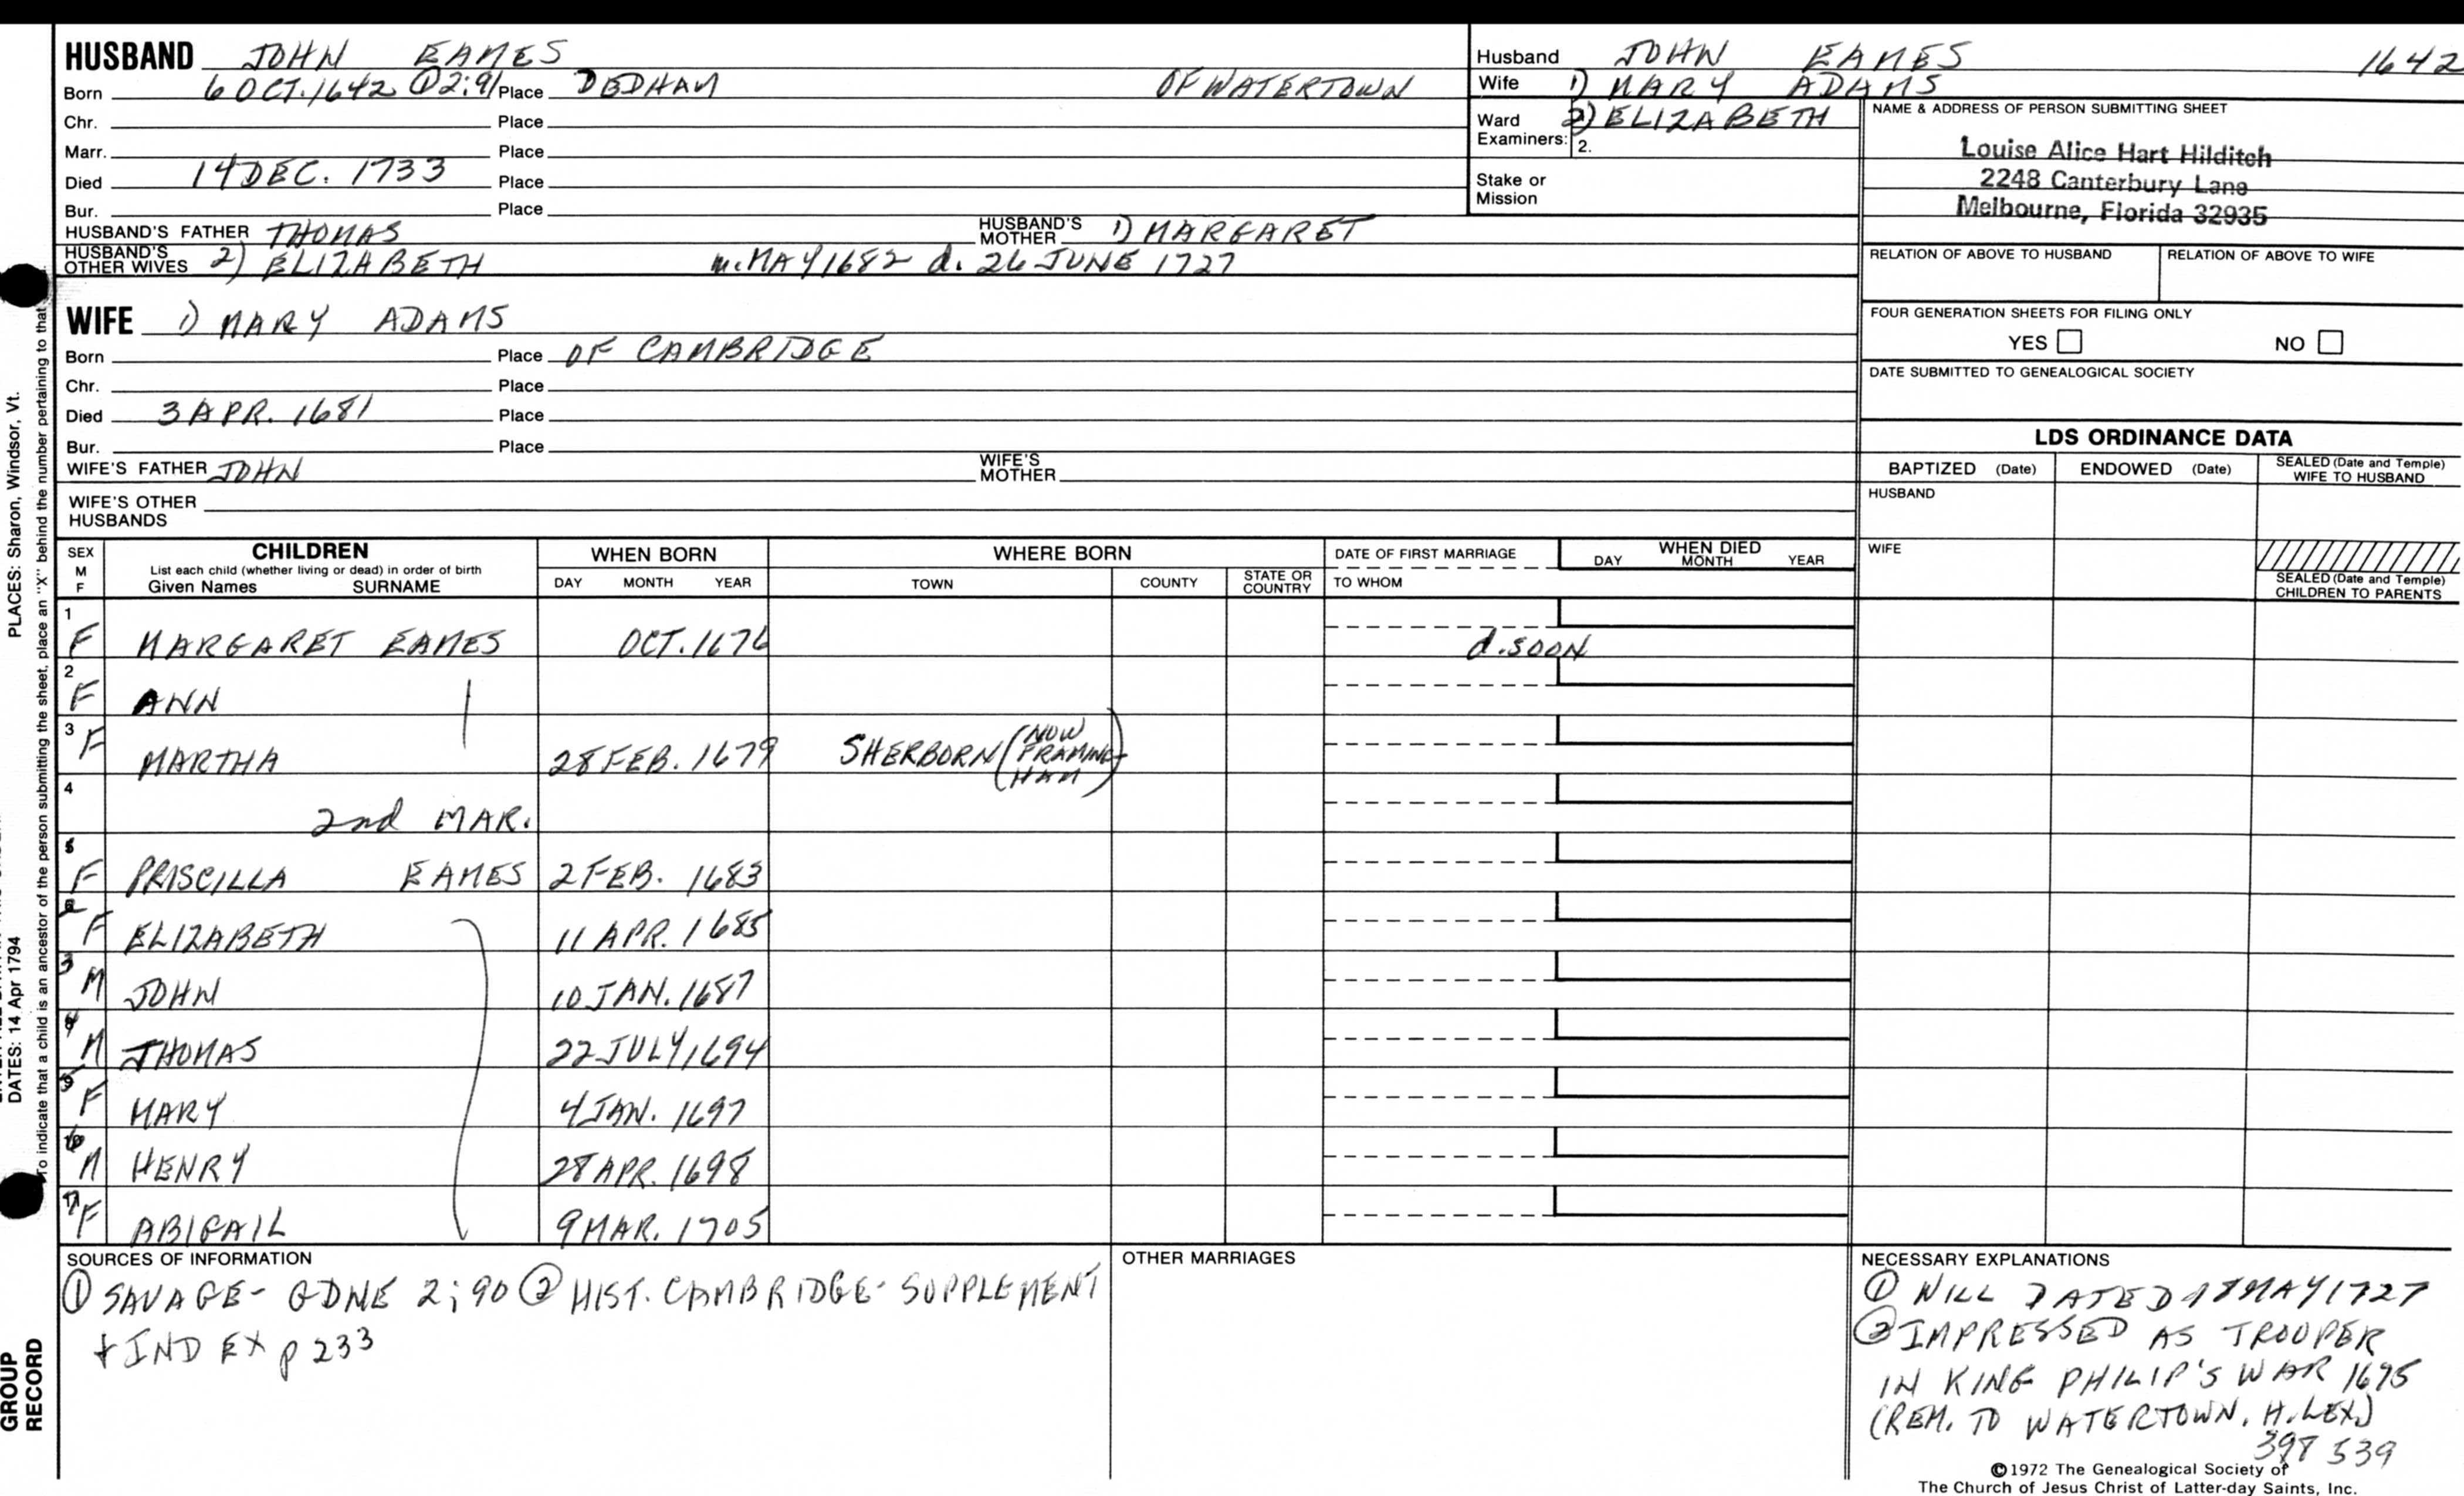 HUSBAND JOHN EAMES
Born 6 OCT. 1642 ① 2:91 Place DEDHAM OF WATERTOWN
Chr. Place
Marr. Place
Died 14 DEC. 1733 Place
Bur. Place
HUSBAND'S FATHER THOMAS HUSBAND'S MOTHER 1) MARGARET
HUSBAND'S OTHER WIVES 2) ELIZABETH m. MAY 1682 d. 26 JUNE 1727
Husband JOHN EAMES 1642
Wife 1) MARY ADAMS
Ward 2) ELIZABETH
Examiners: 2.
Stake or
Mission
NAME & ADDRESS OF PERSON SUBMITTING SHEET
Louise Alice Hart Hilditch
2248 Canterbury Lane
Melbourne, Florida 32935
RELATION OF ABOVE TO HUSBAND RELATION OF ABOVE TO WIFE
FOUR GENERATION SHEETS FOR FILING ONLY
YES NO
DATE SUBMITTED TO GENEALOGICAL SOCIETY
WIFE 1) MARY ADAMS
Born Place OF CAMBRIDGE
Chr. Place
Died 3 APR. 1681 Place
Bur. Place
WIFE'S FATHER JOHN WIFE'S MOTHER
WIFE'S OTHER
HUSBANDS
LDS ORDINANCE DATA
BAPTIZED (Date) ENDOWED (Date) SEALED (Date and Temple) WIFE TO HUSBAND
HUSBAND
WIFE
SEALED (Date and Temple)
CHILDREN TO PARENTS
SEX M F CHILDREN WHEN BORN WHERE BORN DATE OF FIRST MARRIAGE WHEN DIED
List each child (whether living or dead) in order of birth
Given Names SURNAME DAY MONTH YEAR TOWN COUNTY STATE OR COUNTRY TO WHOM DAY MONTH YEAR
1 F MARGARET EAMES OCT. 1676 d. SOON
2 F ANN
3 F MARTHA 28 FEB. 1679 SHERBORN (NOW FRAMINGHAM)
4 2nd MAR.
F PRISCILLA EAMES 2 FEB. 1683
2 F ELIZABETH 11 APR. 1685
3 M JOHN 10 JAN. 1687
4 M THOMAS 22 JULY 1694
5 F MARY 4 JAN. 1697
6 M HENRY 28 APR. 1698
7 F ABIGAIL 9 MAR. 1705
SOURCES OF INFORMATION
① SAVAGE - GDNE 2; 90 ② HIST. CAMBRIDGE - SUPPLEMENT
+ INDEX p 233
OTHER MARRIAGES
NECESSARY EXPLANATIONS
① WILL DATED 18 MAY 1727
② IMPRESSED AS TROOPER
IN KING PHILIP'S WAR 1675
(REM. TO WATERTOWN. H. LEX.)
398 539
©1972 The Genealogical Society of
The Church of Jesus Christ of Latter-day Saints, Inc.
PLACES: Sharon, Windsor, Vt.
DATES: 14 Apr 1794
To indicate that a child is an ancestor of the person submitting the sheet, place an "X" behind the number pertaining to that
GROUP
RECORD